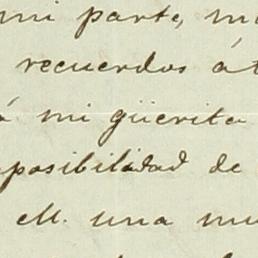 mi parte, m
recuerdos á t
á mi güerita
posibilidad de
M. una mu